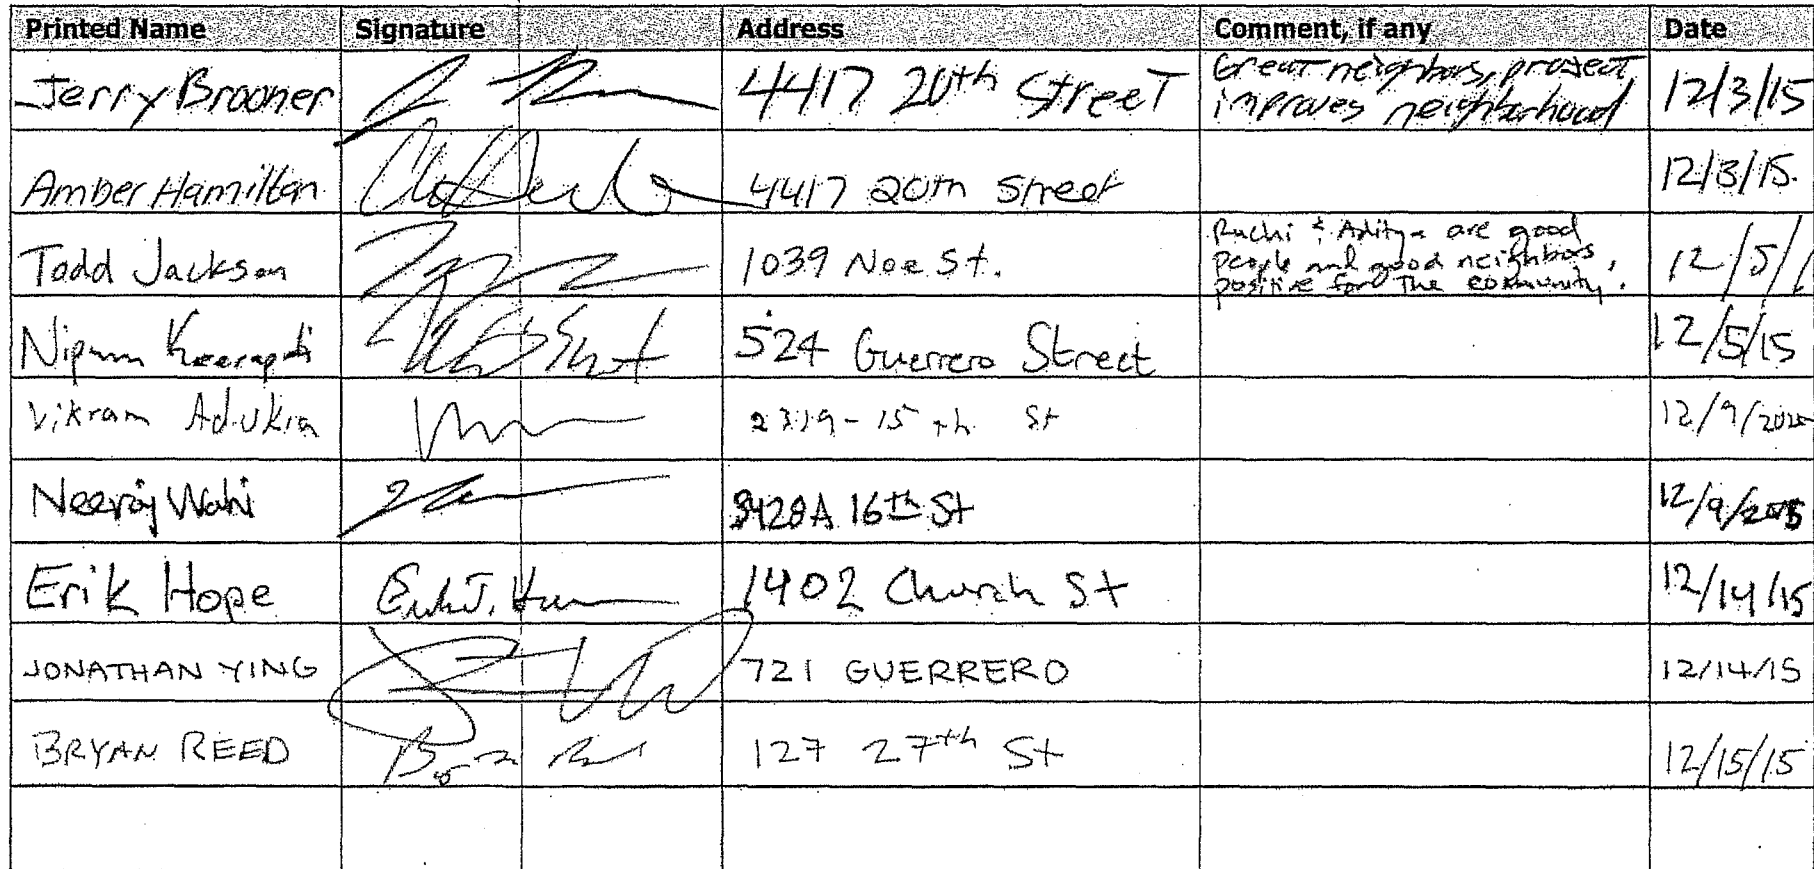 Printed Name Signature Address Comment, if any Date
Jerry Brooner 4417 20th Street Great neighbors, project
improves neighborhood 12/3/15
Amber Hamilton 4417 20th Street 12/3/15.
Todd Jackson 1039 Noe St. Ruchi & Aditya are good
people and good neighbors,
positive for the community. 12/5/1
Nipun 524 Guerrero Street 12/5/15
Vikram Adukia 2319-15th St 12/9/2015
Neeraj Wahi 3428A 16th St 12/9/2015
Erik Hope Erik J. 1402 Church St 12/14/15
JONATHAN YING 721 GUERRERO 12/14/15
BRYAN REED 127 27th St 12/15/15